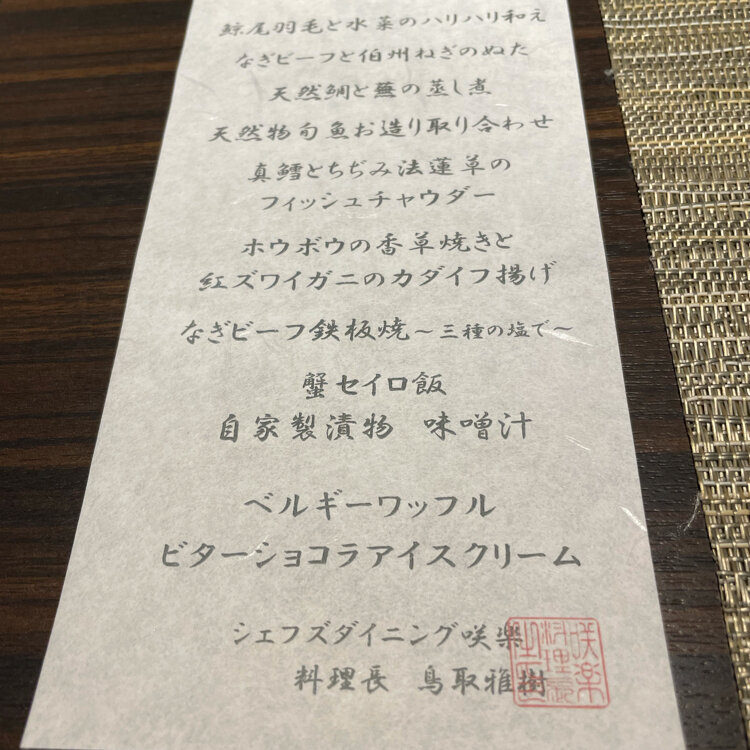 鯨尾羽毛と水菜のハリハリ和え
なぎビーフと伯州ねぎのぬた
天然鯛と蕪の蒸し煮
天然物旬魚お造り取り合わせ
真鱈とちぢみ法蓮草の
フィッシュチャウダー
ホウボウの香草焼きと
紅ズワイガニのカダイフ揚げ
なぎビーフ鉄板焼～三種の塩で～
蟹セイロ飯
自家製漬物 味噌汁
ベルギーワッフル
ビターショコラアイスクリーム
シェフズダイニング咲楽
料理長 鳥取雅樹
咲楽
料理長